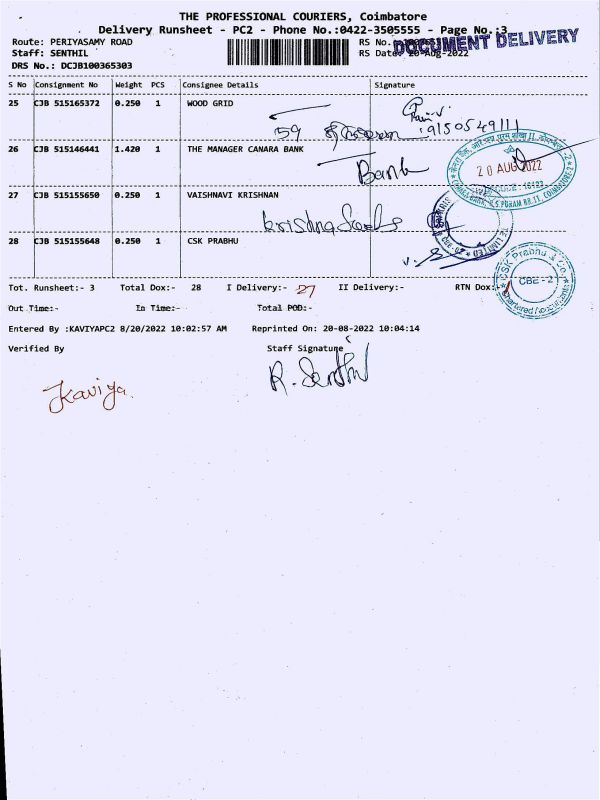 THE PROFESSIONAL COURIERS, Coimbatore
Delivery Runsheet - PC2 - Phone No.:0422-3505555 - Page No.:3
DOCUMENT DELIVERY
Route: PERIYASAMY ROAD
RS No.
Staff: SENTHIL
RS Date: 20-Aug-2022
DRS No.: DCJB100365303
S No Consignment No Weight PCS Consignee Details Signature
25 CJB 515165372 0.250 1 WOOD GRID
59 9150549111
26 CJB 515146441 1.420 1 THE MANAGER CANARA BANK
Bank
20 AUG 2022
27 CJB 515155650 0.250 1 VAISHNAVI KRISHNAN
28 CJB 515155648 0.250 1 CSK PRABHU
CSK Prabhu & Co.
CBE - 2
Chartered Accountants
Tot. Runsheet:- 3 Total Dox:- 28 I Delivery:- 27 II Delivery:- RTN Dox:-
Out Time:- In Time:- Total POD:-
Entered By :KAVIYAPC2 8/20/2022 10:02:57 AM Reprinted On: 20-08-2022 10:04:14
Verified By Staff Signature
Kaviya.
R. Senthil